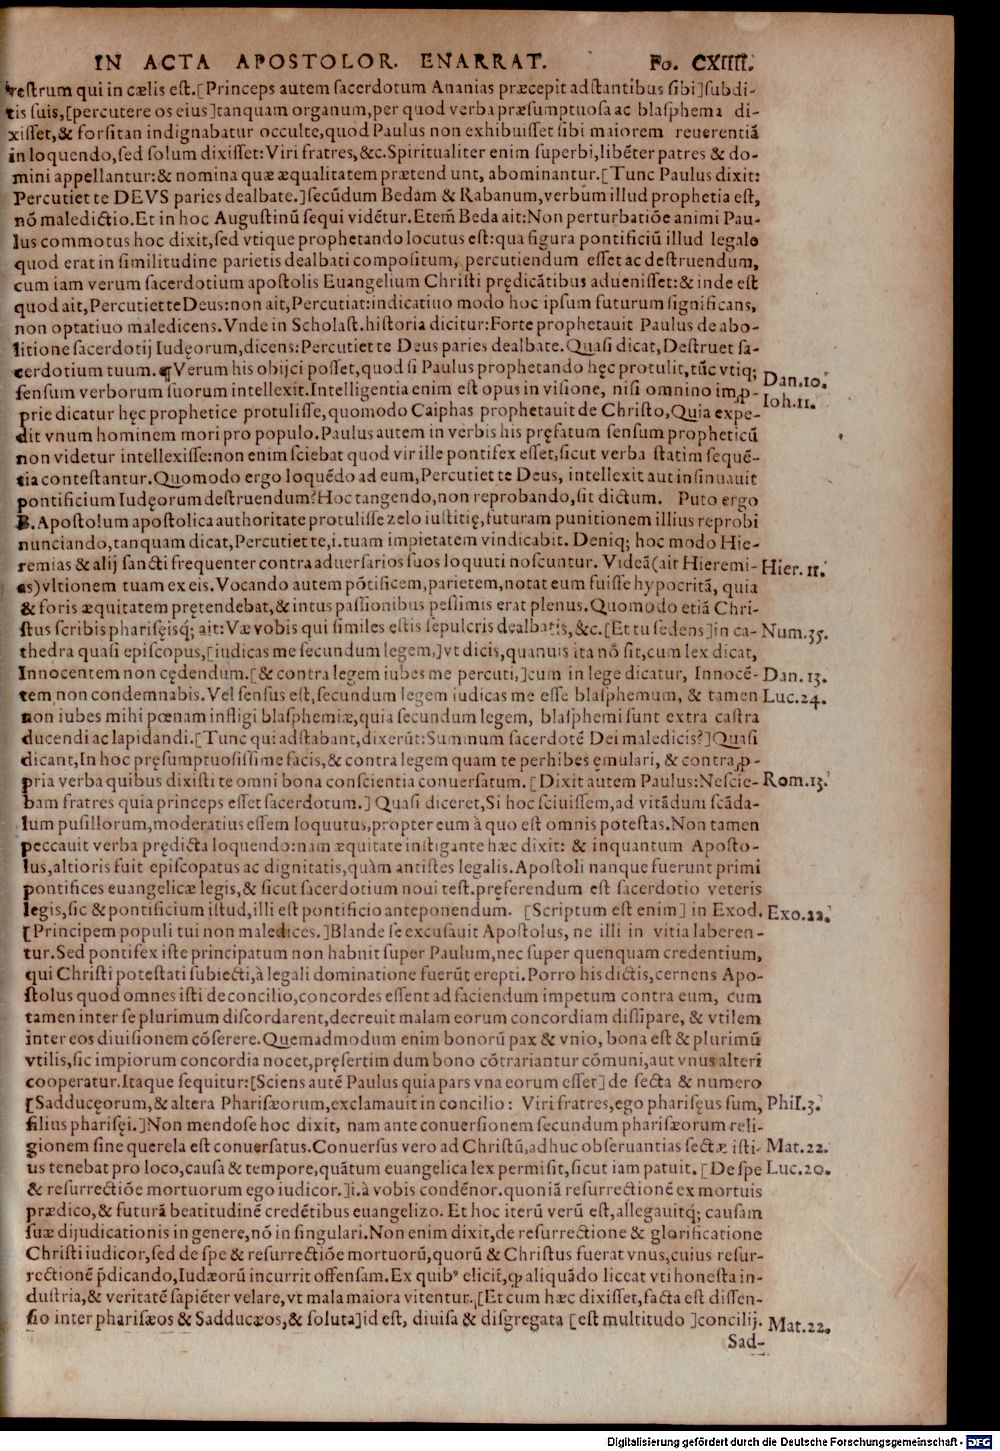 IN ACTA APOSTOLOR. ENARRAT. Fo. CXIIII.
vestrum qui in cælis est.[Princeps autem sacerdotum Ananias præcepit adstantibus sibi]subdi-
tis suis,[percutere os eius]tanquam organum,per quod verba præsumptuosa ac blasphema di-
xisset,& forsitan indignabatur occulte,quod Paulus non exhibuisset sibi maiorem reuerentiã
in loquendo,sed solum dixisset:Viri fratres,&c.Spiritualiter enim superbi,libẽter patres & do-
mini appellantur:& nomina quæ æqualitatem prætendunt, abominantur.[Tunc Paulus dixit:
Percutiet te DEVS paries dealbate.]secũdum Bedam & Rabanum,verbum illud prophetia est,
nõ maledictio.Et in hoc Augustinũ sequi vidẽtur.Etem̃ Beda ait:Non perturbatiõe animi Pau-
lus commotus hoc dixit,sed vtique prophetando locutus est:qua figura pontificiũ illud legale
quod erat in similitudine parietis dealbati compositum, percutiendum esset ac destruendum,
cum iam verum sacerdotium apostolis Euangelium Christi prędicãtibus aduenisset:& inde est
quod ait,Percutiet te Deus:non ait,Percutiat:indicatiuo modo hoc ipsum futurum significans,
non optatiuo maledicens.Vnde in Scholast.historia dicitur:Forte prophetauit Paulus de abo-
litione sacerdotij Iudęorum,dicens:Percutiet te Deus paries dealbate.Quasi dicat,Destruet sa-
cerdotium tuum.¶Verum his obijci posset,quod si Paulus prophetando hęc protulit,tũc vtiq;
sensum verborum suorum intellexit.Intelligentia enim est opus in visione, nisi omnino imꝓ- Dan.10.
prie dicatur hęc prophetice protulisse,quomodo Caiphas prophetauit de Christo,Quia expe- Ioh.11.
dit vnum hominem mori pro populo.Paulus autem in verbis his pręfatum sensum propheticũ
non videtur intellexisse:non enim sciebat quod vir ille pontifex esset,sicut verba statim sequẽ-
tia contestantur.Quomodo ergo loquẽdo ad eum,Percutiet te Deus, intellexit aut insinuauit
pontificium Iudęorum destruendum?Hoc tangendo,non reprobando,sit dictum. Puto ergo
B.Apostolum apostolica authoritate protulisse zelo iustitię,futuram punitionem illius reprobi
nunciando,tanquam dicat,Percutiet te,i.tuam impietatem vindicabit. Deniq; hoc modo Hie-
remias & alij sancti frequenter contra aduersarios suos loquuti noscuntur. Videã(ait Hieremi- Hier. 11.
as)vltionem tuam ex eis.Vocando autem põtificem,parietem,notat eum fuisse hypocritã, quia
& foris æquitatem prętendebat,& intus passionibus pessimis erat plenus.Quomodo etiã Chri-
stus scribis pharisęisq; ait:Væ vobis qui similes estis sepulcris dealbatis,&c.[Et tu sedens]in ca- Num.35.
thedra quasi episcopus,[iudicas me secundum legem,]vt dicis,quanuis ita nõ sit,cum lex dicat,
Innocentem non cędendum.[& contra legem iubes me percuti,]cum in lege dicatur, Innocẽ- Dan. 13.
tem non condemnabis.Vel sensus est,secundum legem iudicas me esse blasphemum, & tamen Luc.24.
non iubes mihi pœnam infligi blasphemiæ,quia secundum legem, blasphemi sunt extra castra
ducendi ac lapidandi.[Tunc qui adstabant,dixerũt:Summum sacerdotẽ Dei maledicis?]Quasi
dicant,In hoc pręsumptuosissime facis,& contra legem quam te perhibes ęmulari, & contra ꝓ-
pria verba quibus dixisti te omni bona conscientia conuersatum. [Dixit autem Paulus:Nescie- Rom.13.
bam fratres quia princeps esset sacerdotum.] Quasi diceret,Si hoc sciuissem,ad vitãdum scãda-
lum pusillorum,moderatius essem loquutus,propter eum à quo est omnis potestas.Non tamen
peccauit verba prędicta loquendo:nam æquitate instigante hæc dixit: & inquantum Aposto-
lus,altioris fuit episcopatus ac dignitatis,quàm antistes legalis.Apostoli nanque fuerunt primi
pontifices euangelicæ legis,& sicut sacerdotium noui test.pręferendum est sacerdotio veteris
legis,sic & pontificium istud,illi est pontificio anteponendum. [Scriptum est enim] in Exod. Exo.22.
[Principem populi tui non maledices.]Blande se excusauit Apostolus, ne illi in vitia laberen-
tur.Sed pontifex iste principatum non habuit super Paulum,nec super quenquam credentium,
qui Christi potestati subiecti,à legali dominatione fuerũt erepti.Porro his dictis,cernens Apo-
stolus quod omnes isti de concilio,concordes essent ad faciendum impetum contra eum, cum
tamen inter se plurimum discordarent,decreuit malam eorum concordiam dissipare, & vtilem
inter eos diuisionem cõserere.Quemadmodum enim bonorũ pax & vnio, bona est & plurimũ
vtilis,sic impiorum concordia nocet,pręsertim dum bono cõtrariantur cõmuni,aut vnus alteri
cooperatur.Itaque sequitur:[Sciens autẽ Paulus quia pars vna eorum esset] de secta & numero
[Sadducęorum,& altera Pharisæorum,exclamauit in concilio: Viri fratres,ego pharisęus sum, Phil.3.
filius pharisęi.]Non mendose hoc dixit, nam ante conuersionem secundum pharisæorum reli-
gionem sine querela est conuersatus.Conuersus vero ad Christũ,adhuc obseruantias sectæ isti- Mat.22.
us tenebat pro loco,causa & tempore,quãtum euangelica lex permisit,sicut iam patuit.[De spe Luc.20.
& resurrectiõe mortuorum ego iudicor.]i.à vobis condẽnor.quoniã resurrectionẽ ex mortuis
prædico,& futurã beatitudinẽ credẽtibus euangelizo. Et hoc iterũ verũ est,allegauitq; causam
suæ dijudicationis in genere,nõ in singulari.Non enim dixit,de resurrectione & glorificatione
Christi iudicor,sed de spe & resurrectiõe mortuorũ,quorũ & Christus fuerat vnus,cuius resur-
rectionẽ p̃dicando,Iudæorũ incurrit offensam.Ex quibꝰ elicit,ꝙ aliquãdo liceat vti honesta in-
dustria,& veritatẽ sapiẽter velare,vt mala maiora vitentur.[Et cum hæc dixisset,facta est dissen-
sio inter pharisæos & Sadducæos,& soluta]id est, diuisa & disgregata [est multitudo ]concilij. Mat.22.
Sad-
Digitalisierung gefördert durch die Deutsche Forschungsgemeinschaft - DFG